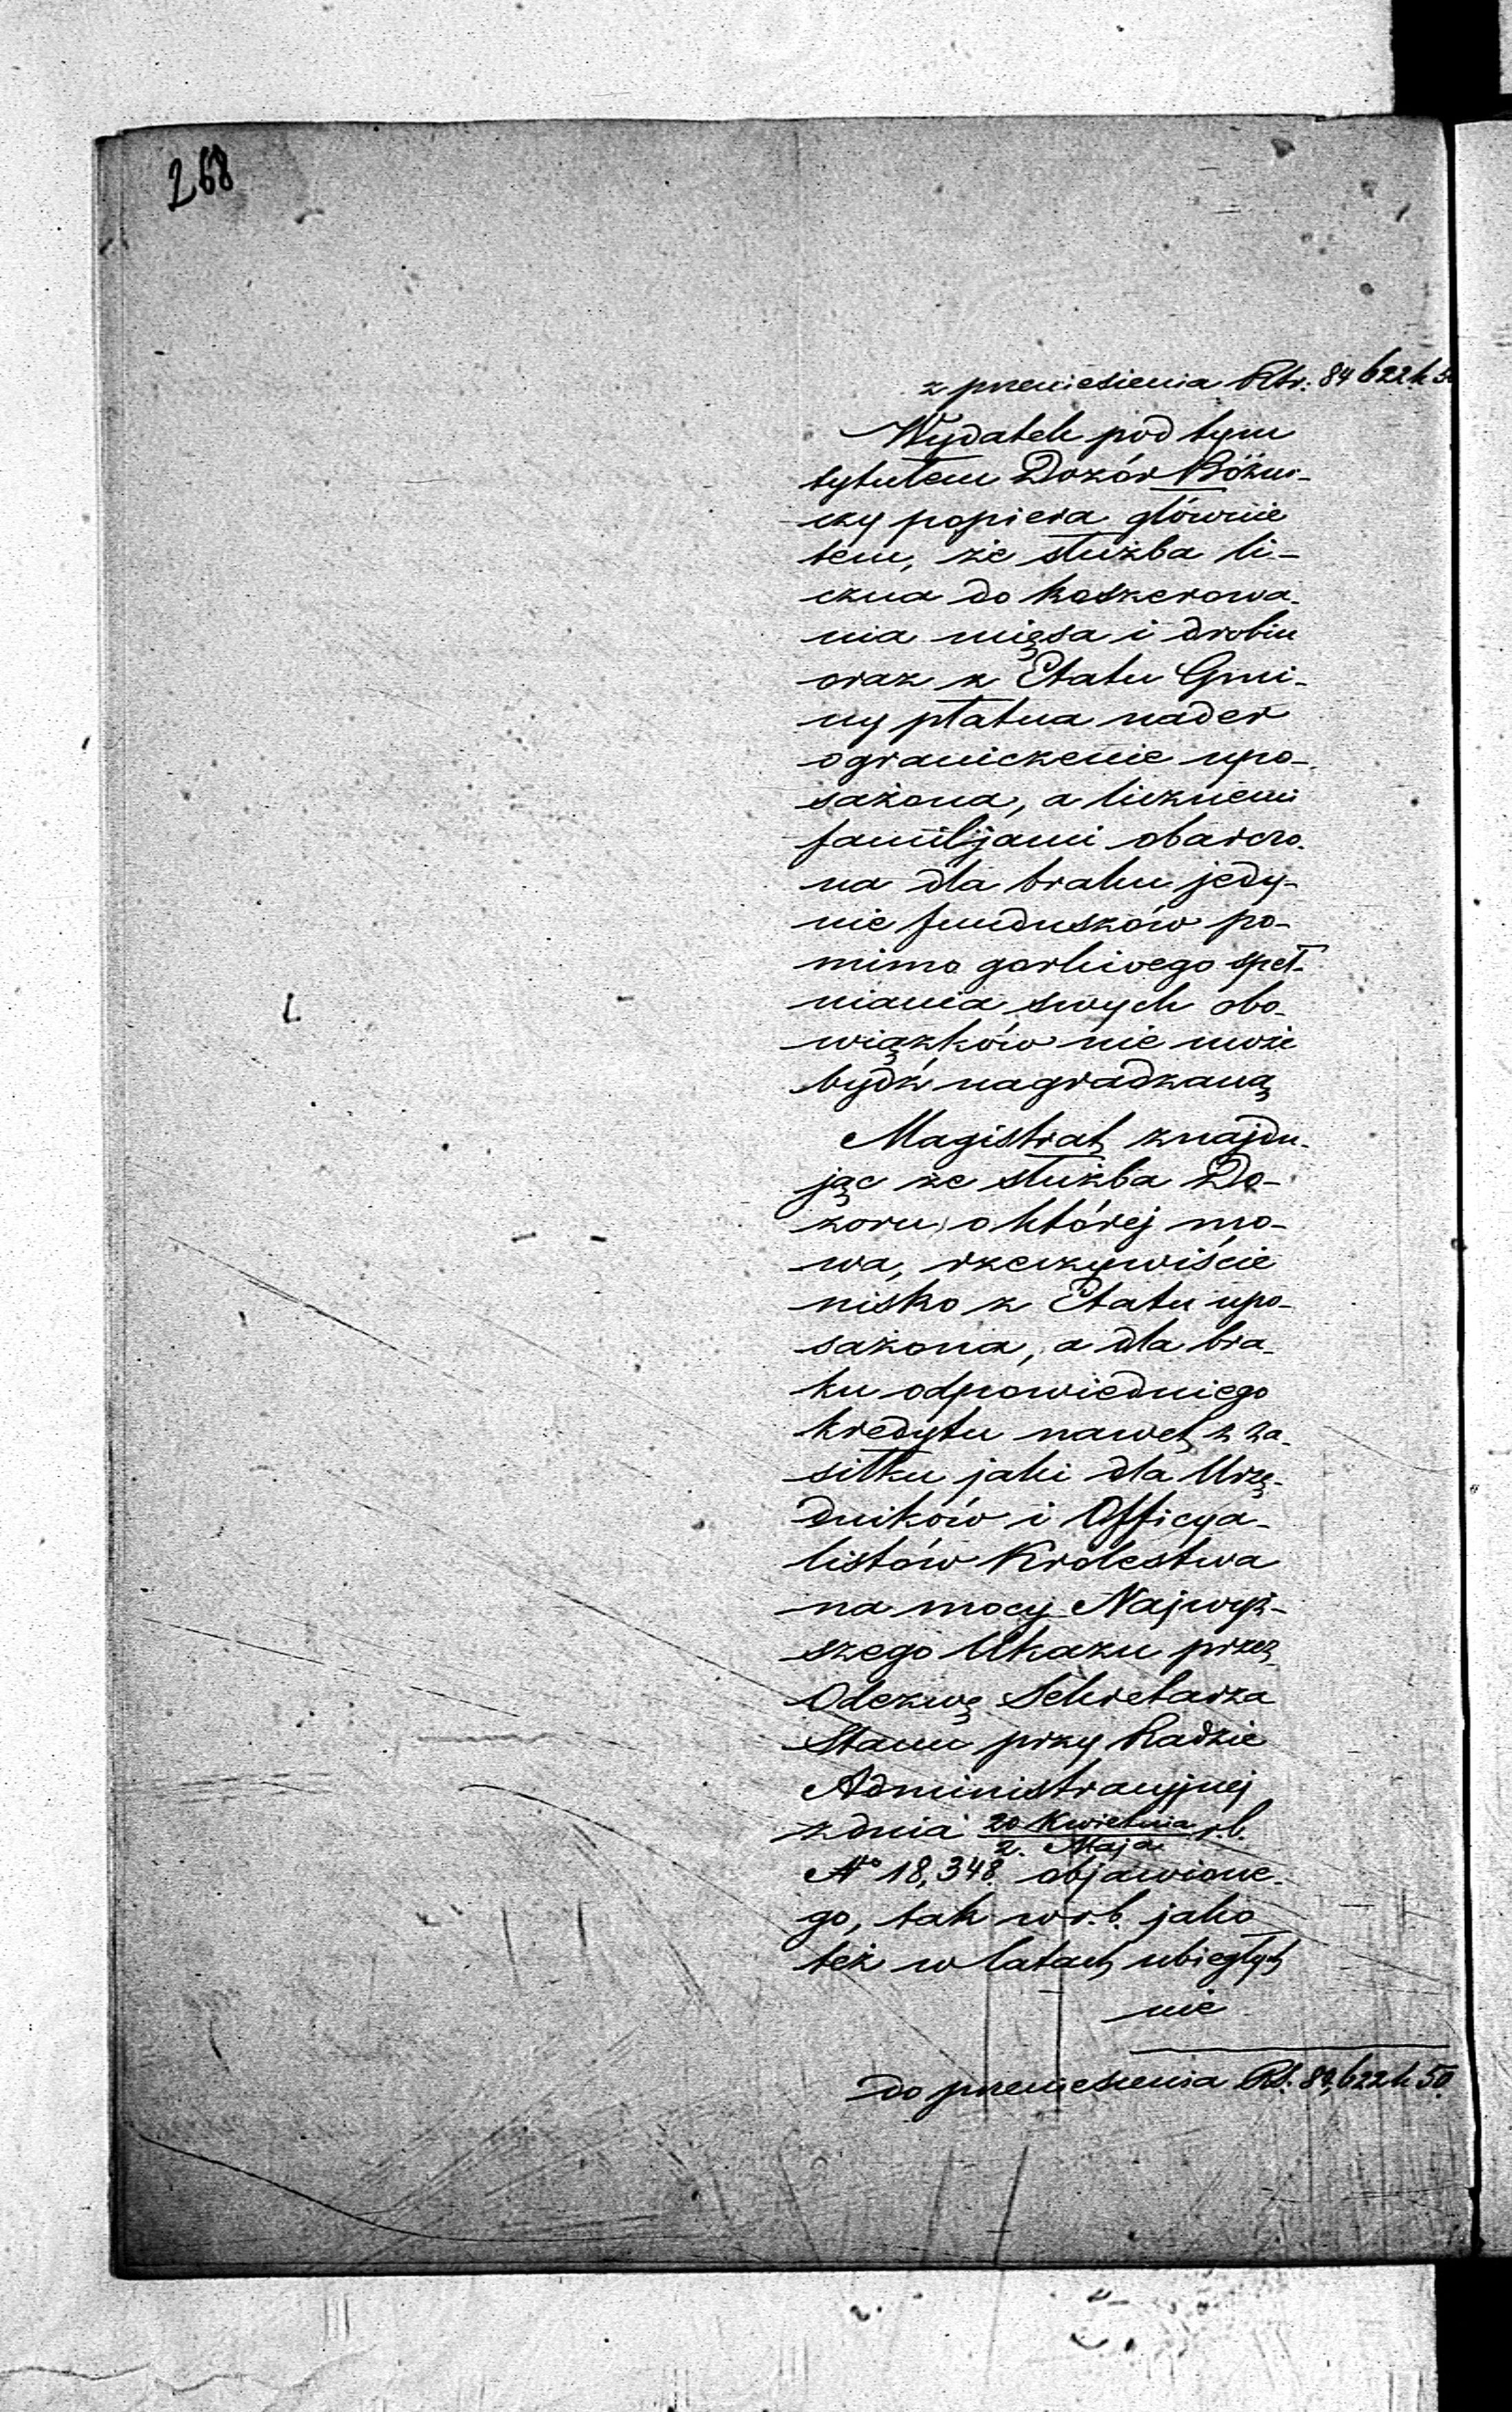 268
z przeniesienia Rsr. 84 622 k 50
Wydatek pod tym
tytułem Dozór Bóżni-
czy popiera głównie
tem, że służba li-
czna do koszerowa-
nia mięsa i drobiu
oraz z Etatu Gmi-
ny płatna nader
ograniczenie upo-
sażona, a licznemi
familijami obarczo-
na dla braku jedy-
nie funduszów po-
mimo gorliwego speł-
niania swych obo-
wiązków nie może
bydź nagradzaną
Magistrat znajdu-
jąc że służba Do-
zoru, o której mo-
wa, rzeczywiście
nisko z Etatu upo-
sażona, a dla bra-
ku odpowiedniego
kredytu nawet z za-
siłku jaki dla Urzę-
dników i Officya-
listów Krolestwa
na mocy Najwyż-
szego Ukazu przez
Odezwę Sekretarza
Stanu przy Radzie
Administracyjnej
z dnia 20 Kwietnia / 2. Maja r.b.
No 18,348. objawione-
go, tak w r.b. jako
też w latach ubiegłych
nie
do przeniesienia RS. 84,622 k 50.